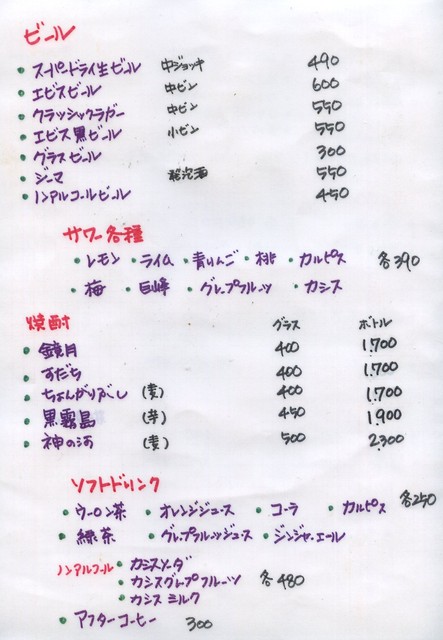 ビール
・スーパードライ生ビール 中ジョッキ 490
・エビスビール 中ビン 600
・クラッシックラガー 中ビン 550
・エビス黒ビール 小ビン 550
・グラスビール 300
・ジーマ 発泡酒 550
・ノンアルコールビール 450
サワー各種
・レモン ・ライム ・青りんご ・桃 ・カルピス 各390
・梅 ・巨峰 ・グレープフルーツ ・カシス
焼酎 グラス ボトル
・鏡月 400 1.700
・すだち 400 1.700
・ちょんがりぶし (麦) 400 1.700
・黒霧島 (芋) 450 1.900
・神の河 (麦) 500 2.300
ソフトドリンク
・ウーロン茶 ・オレンジジュース ・コーラ ・カルピス 各250
・緑茶 ・グレープフルーツジュース ・ジンジャーエール
ノンアルコール ・カシスソーダ
・カシスグレープフルーツ 各480
・カシスミルク
・アフターコーヒー 300